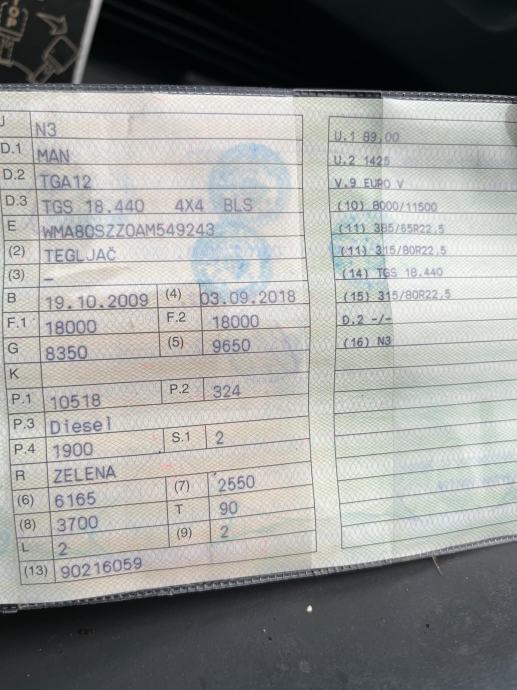 J N3
D.1 MAN
D.2 TGA12
D.3 TGS 18.440 4X4 BLS
E WMA80SZZ0AM549243
(2) TEGLJAČ
(3) –
B 19.10.2009 (4) 03.09.2018
F.1 18000 F.2 18000
G 8350 (5) 9650
K
P.1 10518 P.2 324
P.3 Diesel
P.4 1900 S.1 2
R ZELENA
(6) 6165 (7) 2550
(8) 3700 T 90
L 2 (9) 2
(13) 90216059
U.1 89,00
U.2 1425
V.9 EURO V
(10) 8000/11500
(11) 385/65R22.5
(11) 315/80R22.5
(14) TGS 18.440
(15) 315/80R22.5
D.2 -/-
(16) N3